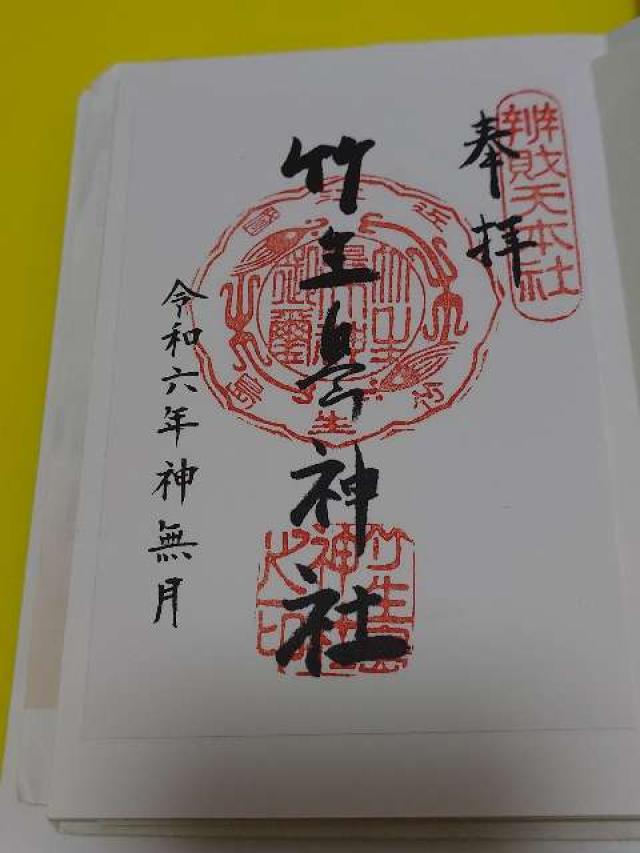 奉拝
辨財天本社
竹生島神社
令和六年神無月
竹生島
神社
之印